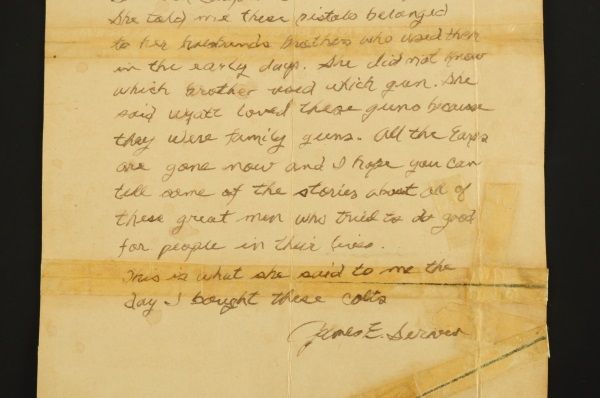 She told me these pistols belonged
to her husbands brothers who used them
in the early days. She did not know
which brother used which gun. She
said wyatt loved these guns because
they were family guns. All the Earps
are gone now and I hope you can
tell some of the stories about all of
these great men who tried to do good
for people in their lives.
This is what she said to me the
day I bought these colts
James E.